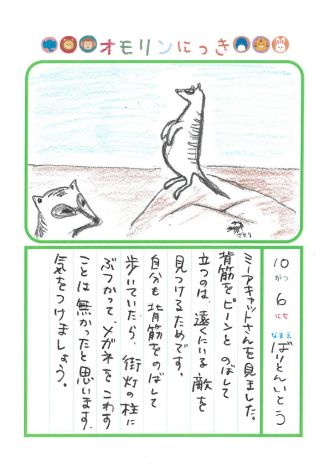 オモリンにっき
さそり
10がつ6にち
なまえ ばりとんいとう
ミーアキャットさんを見ました。
背筋をピーンとのばして
立つのは、遠くにいる敵を
見つけるためです。
自分も背筋をのばして
歩いていたら、街灯の柱に
ぶつかって、メガネをこわす
ことは無かったと思います。
気をつけましょう。